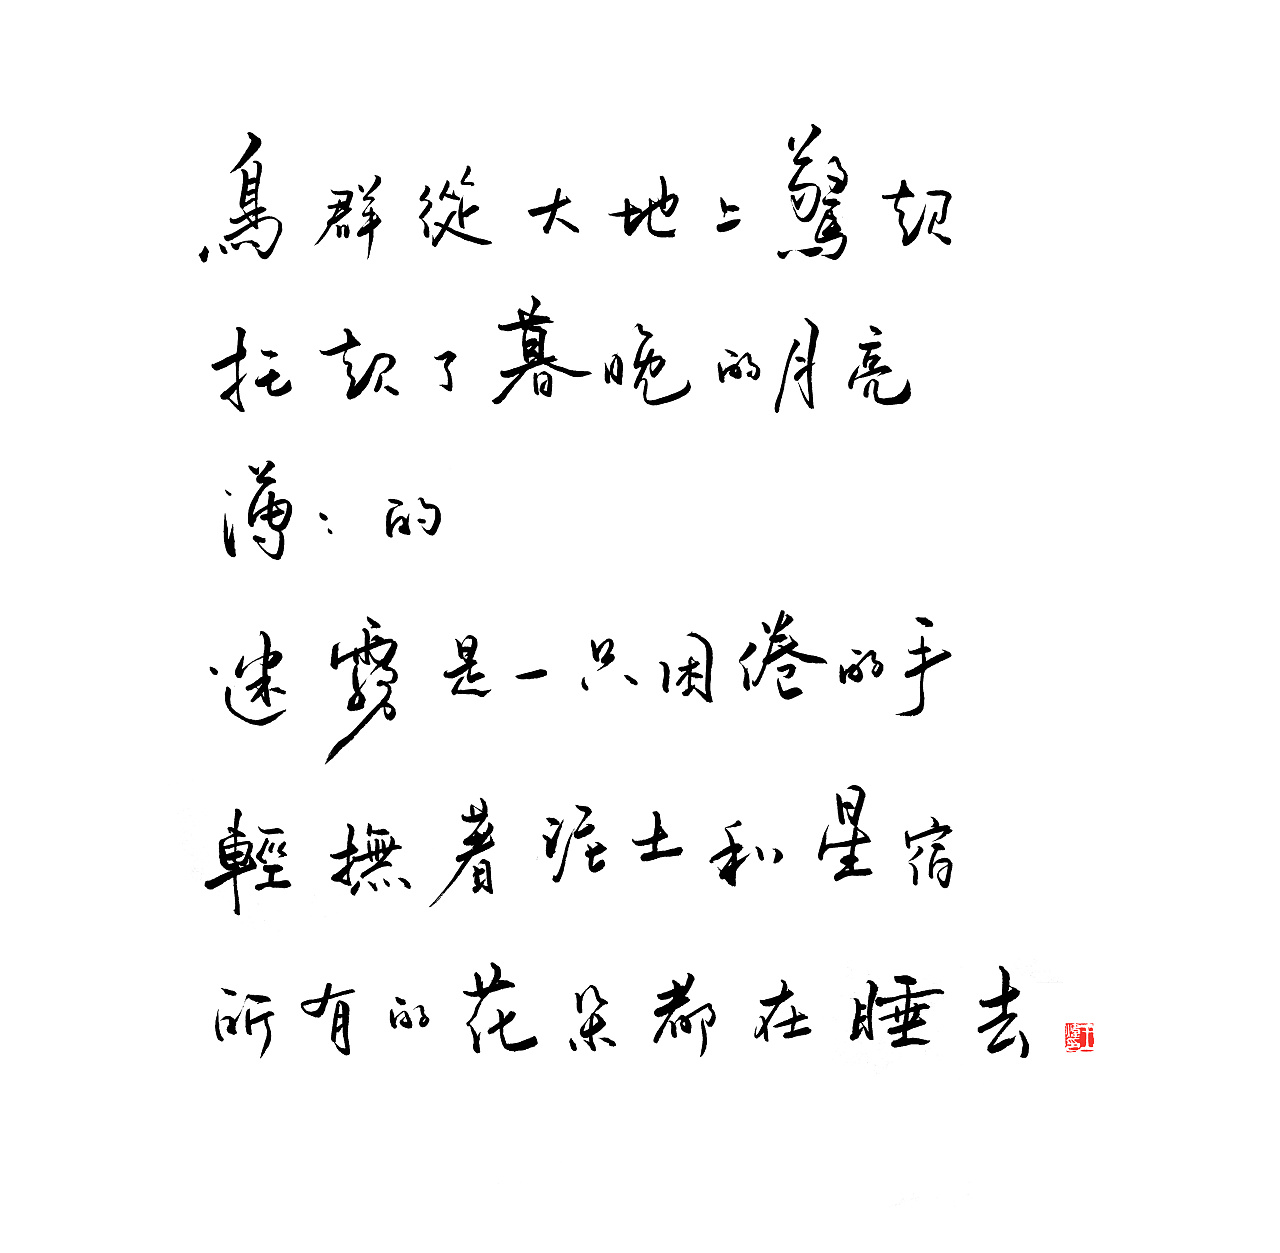 鳥群從大地上驚起
托起了暮晚的月亮
薄〻的
迷霧是一只困倦的手
輕撫着泥土和星宿
所有的花朵都在睡去